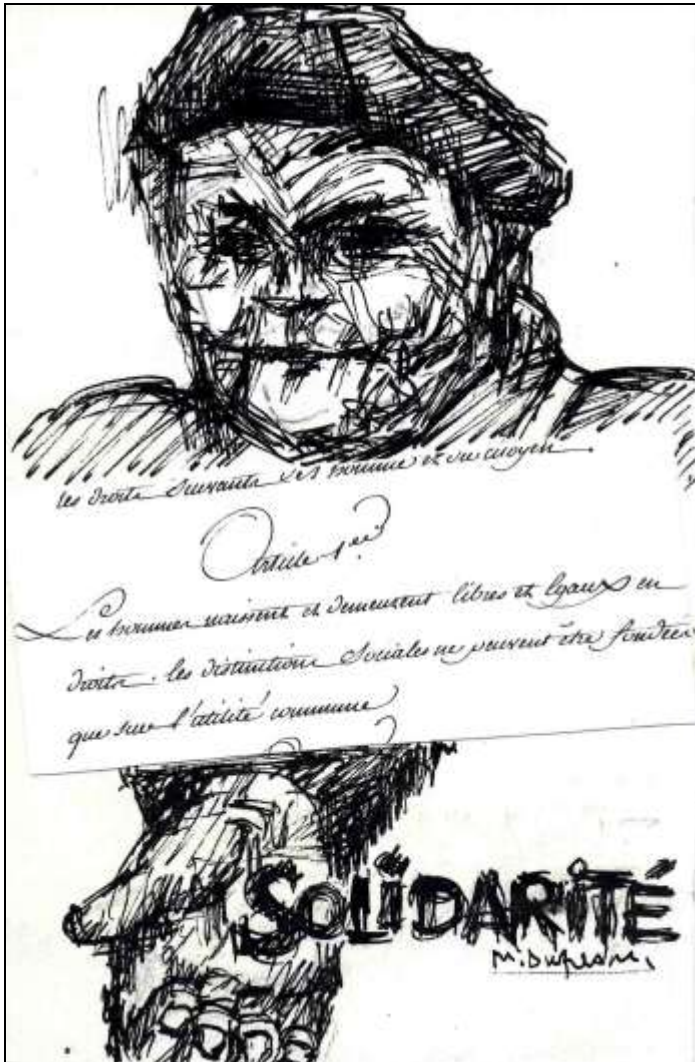 les droits suivants de l'homme et du citoyen.
Article 1er
Les hommes naissent et demeurent libres et égaux en
droits. les distinctions Sociales ne peuvent être fondées
que sur l'utilité commune
SOLIDARITÉ